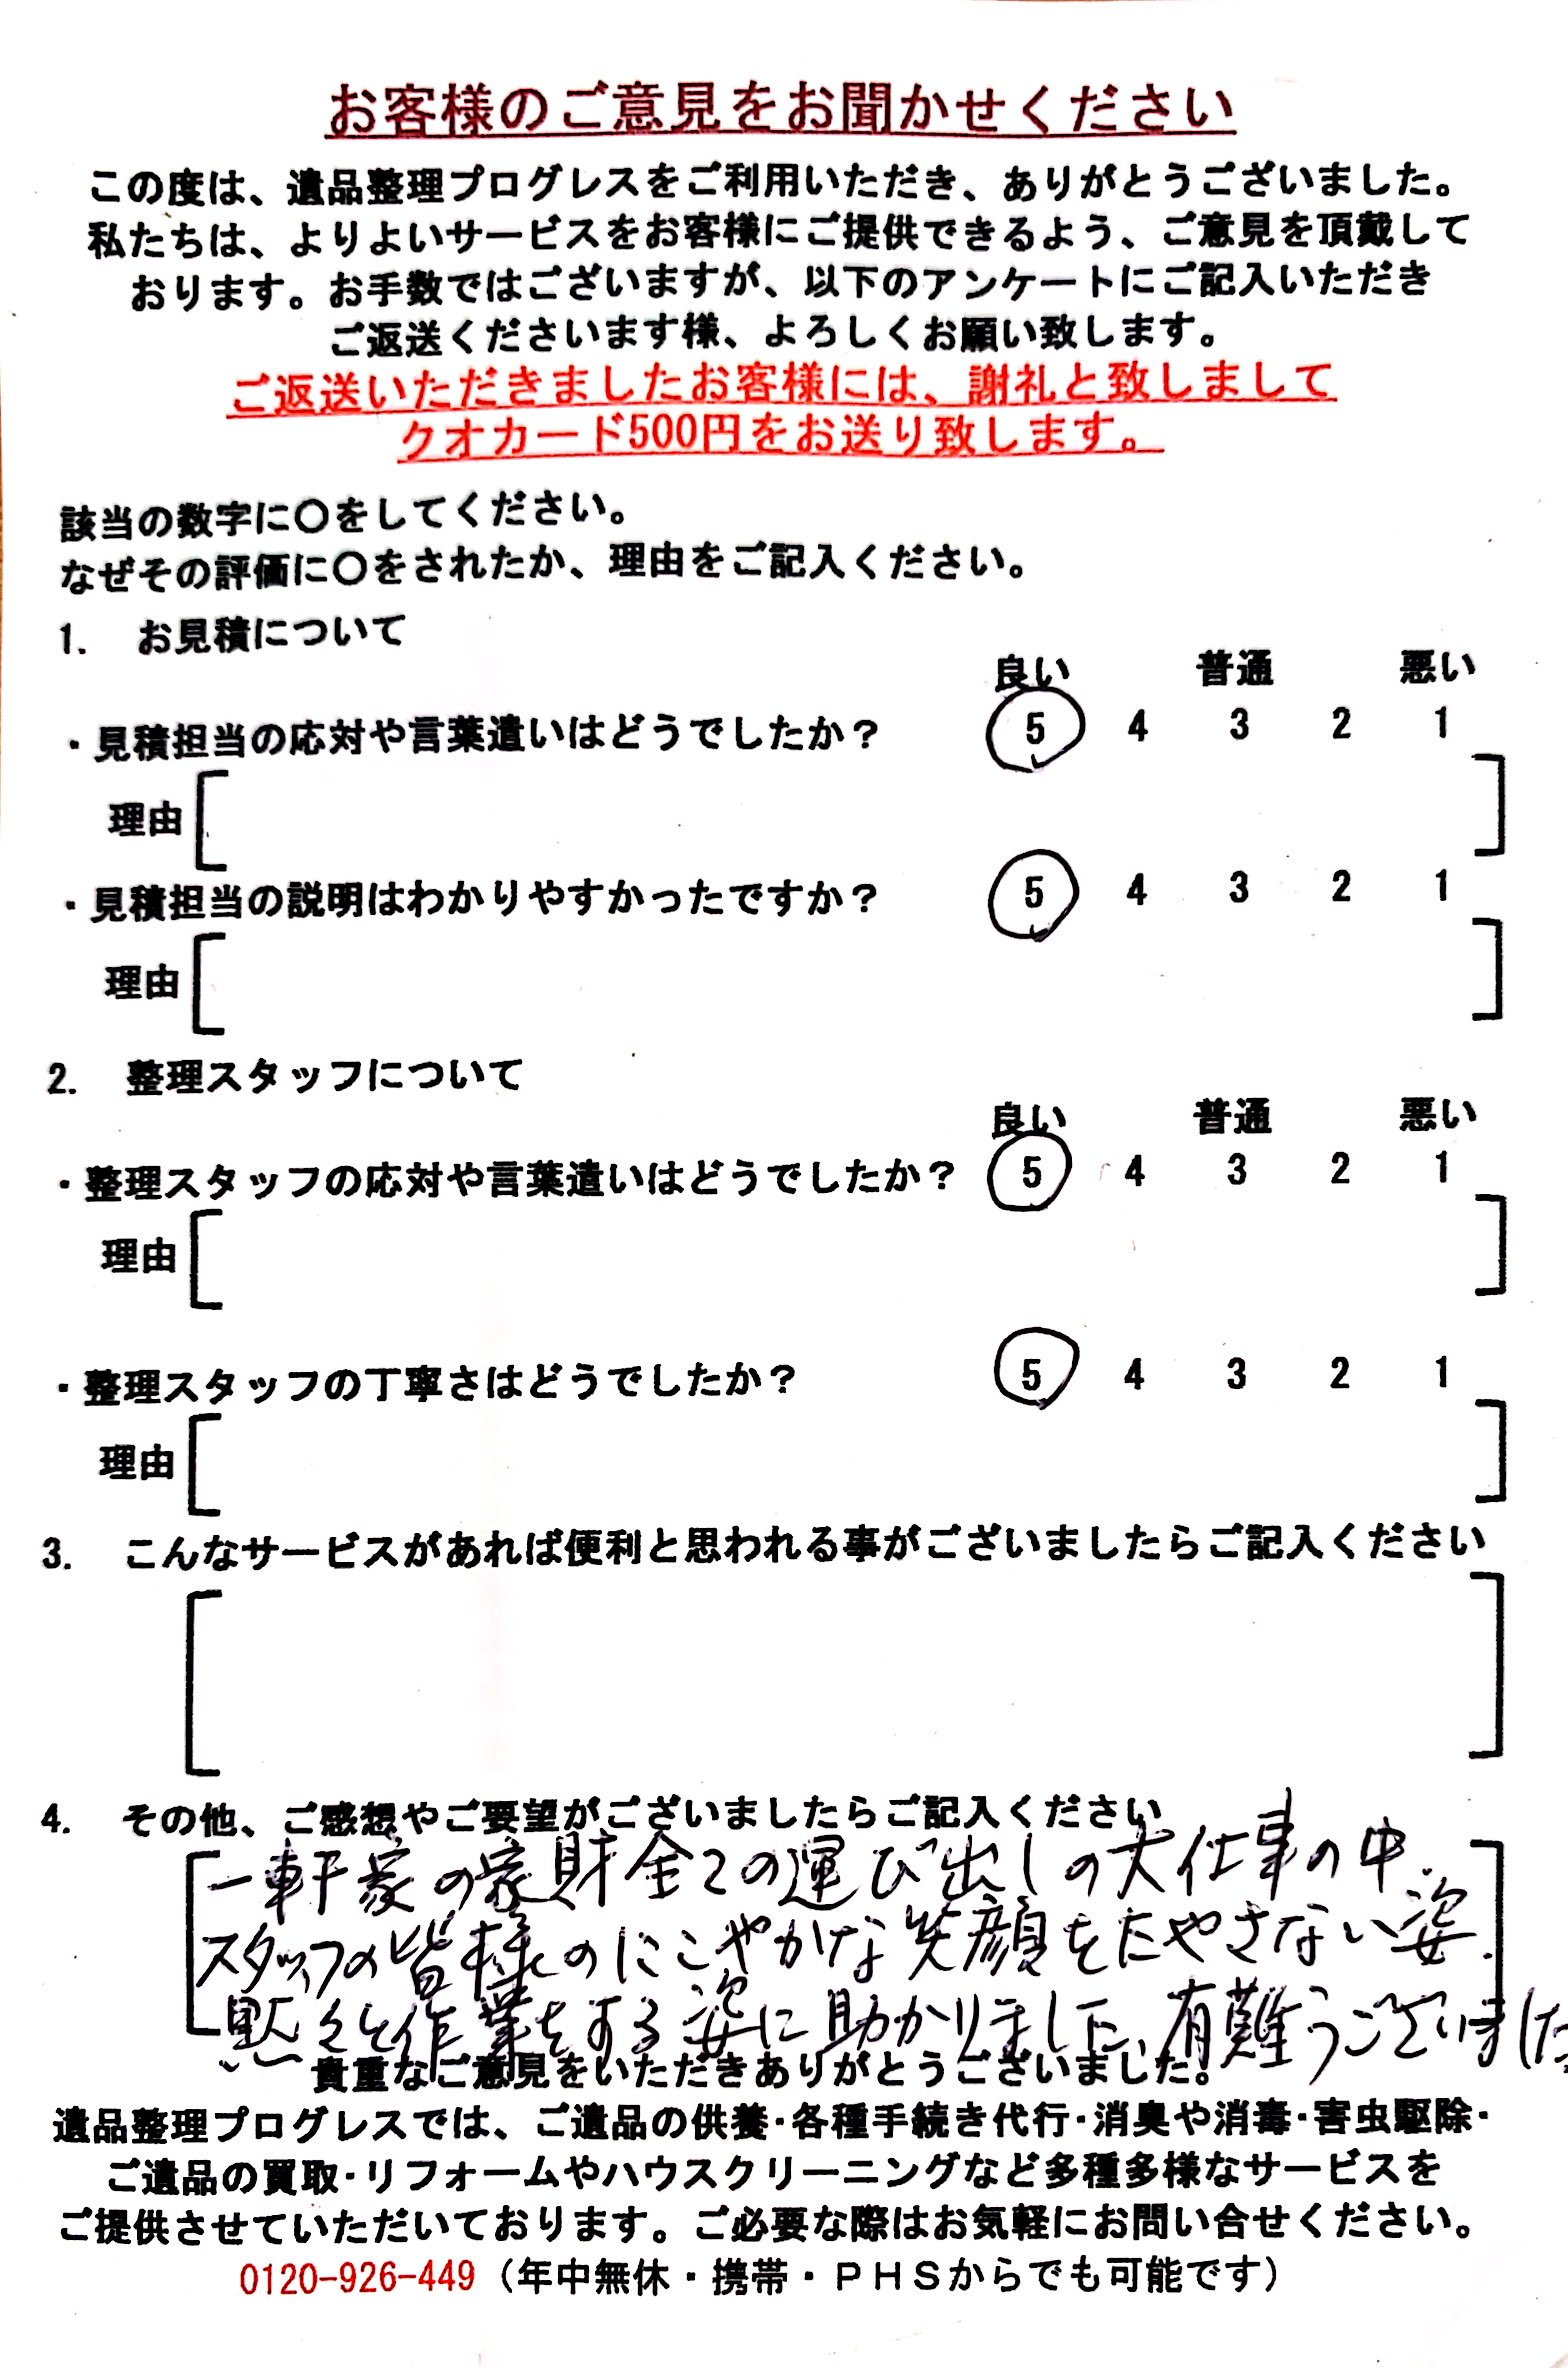 お客様のご意見をお聞かせください
この度は、遺品整理プログレスをご利用いただき、ありがとうございました。
私たちは、よりよいサービスをお客様にご提供できるよう、ご意見を頂戴して
おります。お手数ではございますが、以下のアンケートにご記入いただき
ご返送くださいます様、よろしくお願い致します。
ご返送いただきましたお客様には、謝礼と致しまして
クオカード500円をお送り致します。
該当の数字に〇をしてください。
なぜその評価に〇をされたか、理由をご記入ください。
1. お見積について
良い 普通 悪い
・見積担当の応対や言葉遣いはどうでしたか? 5 4 3 2 1
理由
・見積担当の説明はわかりやすかったですか? 5 4 3 2 1
理由
2. 整理スタッフについて
良い 普通 悪い
・整理スタッフの応対や言葉遣いはどうでしたか? 5 4 3 2 1
理由
・整理スタッフの丁寧さはどうでしたか? 5 4 3 2 1
理由
3. こんなサービスがあれば便利と思われる事がございましたらご記入ください
4. その他、ご感想やご要望がございましたらご記入ください
一軒家の家財全ての運び出しの大仕事の中、
スタッフの皆様のにこやかな笑顔をたやさない姿、
黙々と作業をする姿に助かりました、有難うございました
貴重なご意見をいただきありがとうございました。
遺品整理プログレスでは、ご遺品の供養・各種手続き代行・消臭や消毒・害虫駆除・
ご遺品の買取・リフォームやハウスクリーニングなど多種多様なサービスを
ご提供させていただいております。ご必要な際はお気軽にお問い合せください。
0120-926-449（年中無休・携帯・ＰＨＳからでも可能です）